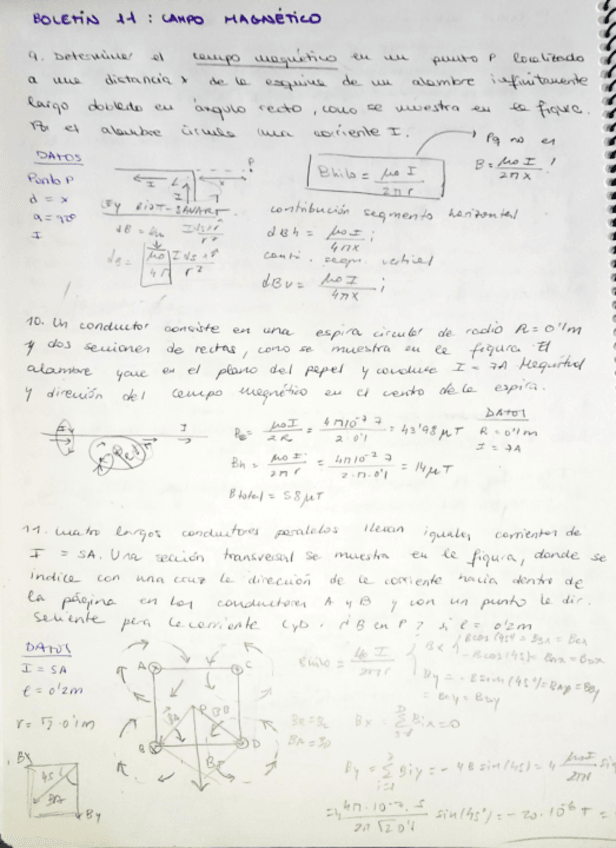 BOLETÍN 11: CAMPO MAGNÉTICO
9. Determinar el campo magnético en un punto P localizado
a una distancia x de la esquina de un alambre infinitamente
largo doblado en ángulo recto, como se muestra en la figura.
Por el alambre circula una corriente I.
DATOS
Punto P
d = x
a = 90º
I
P
I
x
Bhilo = μ0 I / 2πr
Pq no es
B = μ0 I / 2πx !
LEY BIOT-SAVART
contribución segmento horizontal
dBh = μ0 I / 4πx i
conti. segm. vertical
dBv = μ0 I / 4πx i
10. Un conductor consiste en una espira circular de radio R = 0'1m
y dos seciones de rectas, como se muestra en la figura. El
alambre yace en el plano del papel y conduce I = 7A Magnitud
y dirección del campo magnético en el centro de la espira.
I
Be = μ0 I / 2R = 4π10⁻⁷ 7 / 2·0'1 = 43'98 μT
DATOS
R = 0'1m
I = 7A
Bh = μ0 I / 2πr = 4π10⁻⁷ 7 / 2·π·0'1 = 14 μT
Btotal = 58 μT
11. Cuatro largos conductores paralelos llevan iguales corrientes de
I = 5A. Una sección transversal se muestra en la figura, donde se
indica con una cruz la dirección de la corriente hacia dentro de
la página en los conductores A y B y con un punto la dir.
saliente para la corriente C y D. ¿B en P? si l = 0'2m
DATOS
I = 5A
l = 0'2m
r = √2·0'1m
A
C
P
BA
B
D
Bhilo = μ0 I / 2πr
Bx
By
Bx = Σ Bix = 0
By = Σ Biy = -4B sin(45) = 4 μ0 I / 2πr
BX
45
BA
By
= 4 4π·10⁻⁷·5 / 2π√2 0'1 sin(45º) = -20·10⁻⁶ T =